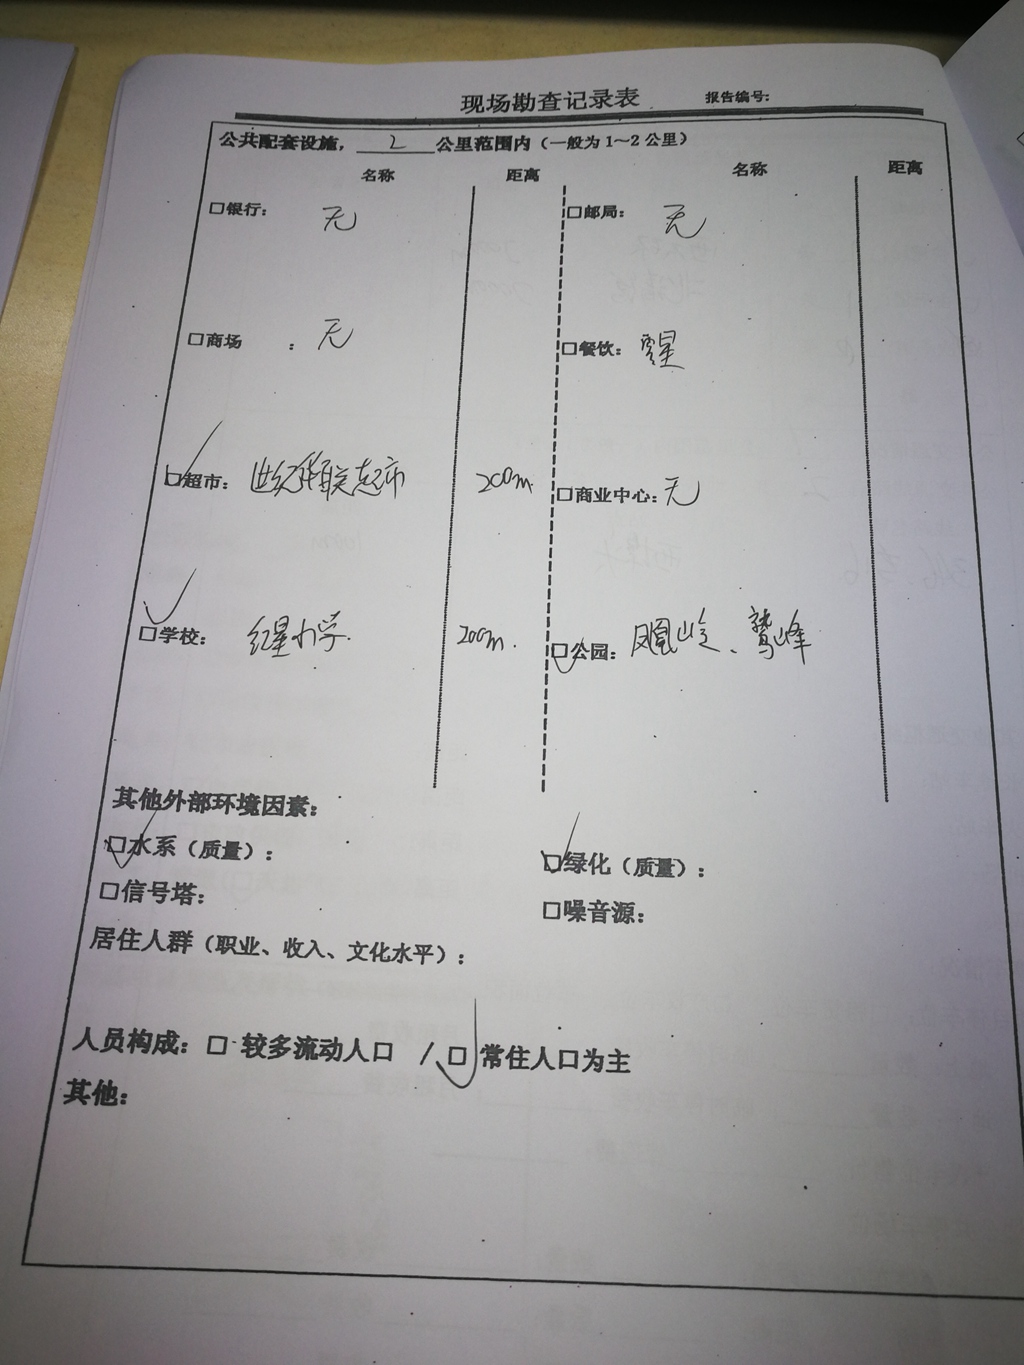 现场勘查记录表 报告编号:
公共配套设施, 2 公里范围内（一般为1～2公里）
名称 距离 名称 距离
□银行: 无 □邮局: 无
□商场 : 无 □餐饮: 零星
☑超市: 世纪华联超市 200m □商业中心: 无
☑学校: 红星小学 200m. ☑公园: 凤凰岭、鹫峰
其他外部环境因素:
☑水系（质量）: ☑绿化（质量）:
□信号塔: □噪音源:
居住人群（职业、收入、文化水平）:
人员构成: □ 较多流动人口 / ☑ 常住人口为主
其他: